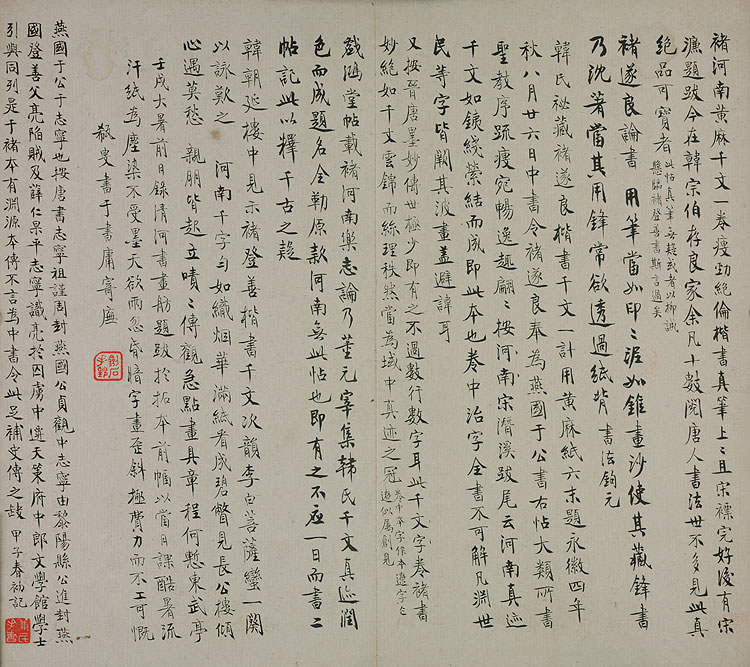 褚河南黃麻千文一卷瘦勁絕倫楷書真筆上上且宋褾完好後有宋
濂題跋今在韓宗伯存良家余凡十數閱唐人書法世不多見此真
絕品可寶者 此帖真筆無疑或者以柳誠懸臨褚登善書斯言過矣
褚遂良論書 用筆當如印印泥如錐畫沙使其藏鋒書
乃沈著當其用鋒常欲透過紙背 書法鉤元
韓氏祕藏褚遂良楷書千文一計用黃麻紙六末題永徽四年
秋八月廿六日中書令褚遂良奉為燕國于公書右帖大類所書
聖教序疏瘦宛暢逸趣翩翩按河南宋濳溪跋尾云河南真迹
千文如鐵綫縈結而成即此本也卷中治字全書不可解凡淵世
民等字皆闕其波畫蓋避諱耳
又按晉唐墨妙傳世極少即有之不過數行數字耳此千文字卷褚書
妙絕如千文雲錦而絲理秩然當為域中真迹之冠
戲鴻堂帖載褚河南樂志論乃董元宰集韓氏千文真迹潤
色而成題名全勒原款河南無此帖也即有之不應一日而書二
帖記此以釋千古之疑
韓朝延樓中見示褚登善楷書千文次韻李白菩薩蠻一闋
以詠歎之 河南千字勻如織烟華滿紙看成碧瞥見長公樓傾
心遇莫愁 親朋皆起立嘖嘖傳觀急點畫具章程何慙東武亭
壬戌大暑前日錄清河書畫舫題跋於拓本前幅以當日課酷暑流
汗紙為塵染不受墨天欲雨忽昏暗字畫歪斜極費力而不工可慨
燕國于公于志寧也按唐書志寧祖謹周封燕國公貞觀中志寧由黎陽縣公進封燕
國登善父亮陷賊及薛仁杲平志寧識亮於囚虜中遷天策府中郎文學館學士
引與同列是于褚本有淵源本傳不言為中書令此足補史傳之缺 甲子春初記